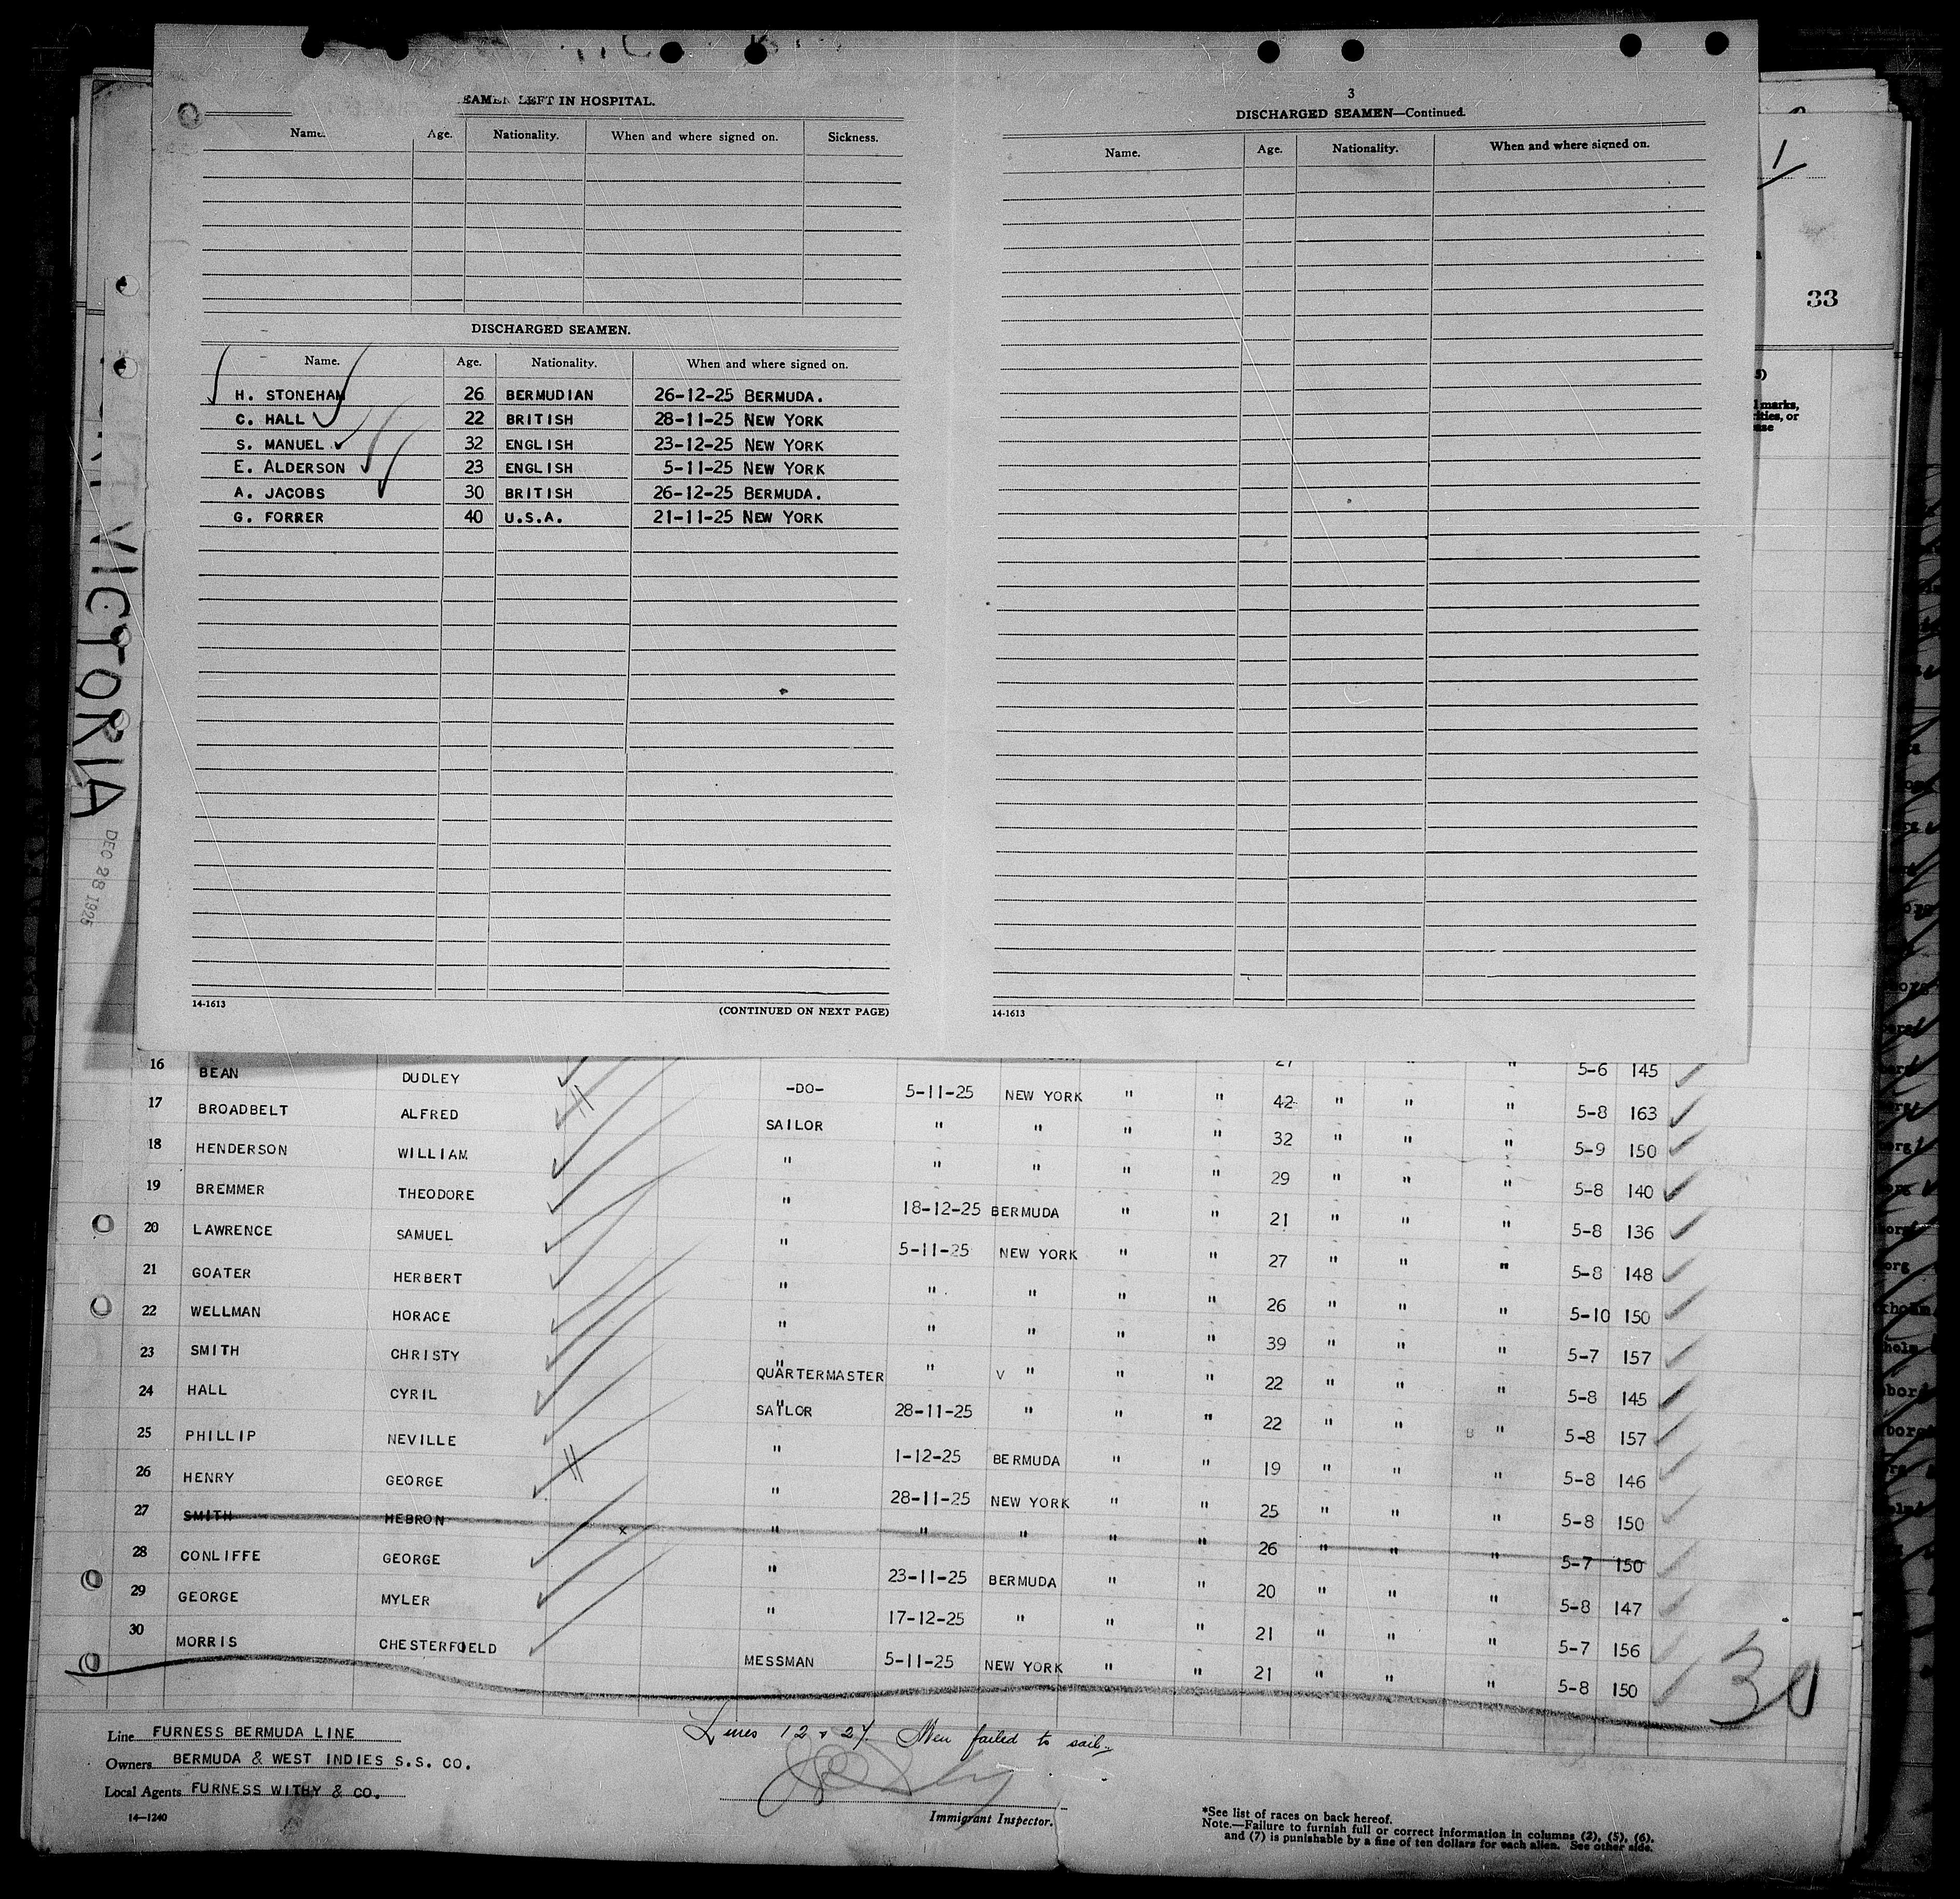 SEAMEN LEFT IN HOSPITAL.
Name. Age. Nationality. When and where signed on. Sickness.
DISCHARGED SEAMEN.
Name. Age. Nationality. When and where signed on.
H. STONEHAM 26 BERMUDIAN 26-12-25 BERMUDA.
C. HALL 22 BRITISH 28-11-25 NEW YORK
S. MANUEL 32 ENGLISH 23-12-25 NEW YORK
E. ALDERSON 23 ENGLISH 5-11-25 NEW YORK
A. JACOBS 30 BRITISH 26-12-25 BERMUDA.
G. FORRER 40 U.S.A. 21-11-25 NEW YORK
14-1613 (CONTINUED ON NEXT PAGE)
3
DISCHARGED SEAMEN—Continued.
Name. Age. Nationality. When and where signed on.
14-1613
33
marks,
or
VICTORIA
DEC 28 1925
16 BEAN DUDLEY -DO- 5-11-25 NEW YORK " " 42 " " " 5-6 145
17 BROADBELT ALFRED SAILOR " " " " 32 " " " 5-8 163
18 HENDERSON WILLIAM " " " " " 29 " " " 5-9 150
19 BREMMER THEODORE " 18-12-25 BERMUDA " " 21 " " " 5-8 140
20 LAWRENCE SAMUEL " 5-11-25 NEW YORK " " 27 " " " 5-8 136
21 GOATER HERBERT " " " " " 26 " " " 5-8 148
22 WELLMAN HORACE " " " " " 39 " " " 5-10 150
23 SMITH CHRISTY QUARTERMASTER " V " " " 22 " " " 5-7 157
24 HALL CYRIL SAILOR 28-11-25 " " " 22 " " " 5-8 145
25 PHILLIP NEVILLE " 1-12-25 BERMUDA " " 19 " " " 5-8 157
26 HENRY GEORGE " 28-11-25 NEW YORK " " 25 " " " 5-8 146
27 SMITH HEBRON " " " " " 26 " " " 5-8 150
28 CONLIFFE GEORGE " 23-11-25 BERMUDA " " 20 " " " 5-7 150
29 GEORGE MYLER " 17-12-25 " " " 21 " " " 5-8 147
30 MORRIS CHESTERFIELD MESSMAN 5-11-25 NEW YORK " " 21 " " " 5-7 156
5-8 150
30
Line FURNESS BERMUDA LINE
Owners BERMUDA & WEST INDIES S.S. CO.
Local Agents FURNESS WITHY & CO.
14—1240
Lines 12 & 27. Men failed to sail.
Immigrant Inspector.
*See list of races on back hereof.
Note.—Failure to furnish full or correct information in columns (2), (5), (6),
and (7) is punishable by a fine of ten dollars for each alien. See other side.